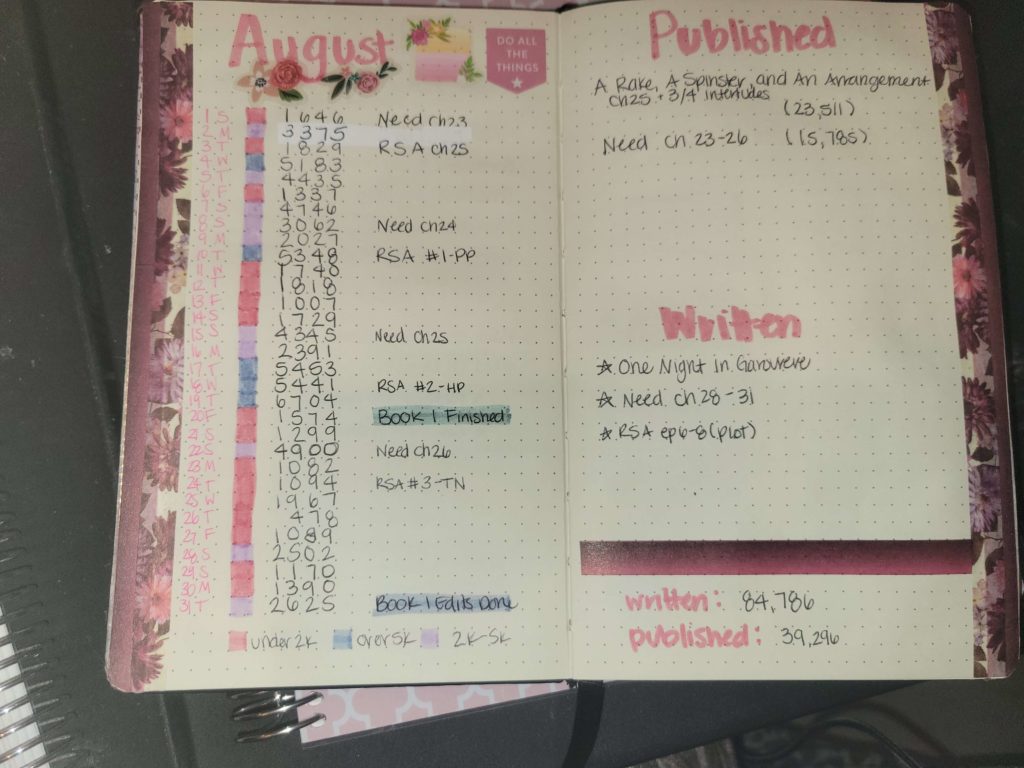 August
DO ALL
THE
THINGS
1 S 1646 Need ch23
2 M 3375
3 T 1829 RSA ch25
4 W 5183
5 T 4435
6 F 1337
7 S 4746
8 S 3062 Need ch24
9 M 2027
10 T 5348 RSA #1-PP
11 W 1740
12 T 1818
13 F 1007
14 S 1729
15 S 4345 Need ch25
16 M 2391
17 T 5453
18 W 5441 RSA #2-HP
19 T 6704
20 F 1574 Book 1 Finished
21 S 1299
22 S 4900 Need ch26
23 M 1082
24 T 1094 RSA #3-TN
25 W 1967
26 T 478
27 F 1089
28 S 2502
29 S 1170
30 M 1390
31 T 2625 Book 1 Edits Done
under 2k over 5k 2k-5k
Published
A Rake, A Spinster, and An Arrangement
ch25 + 3/4 interludes
(23,511)
Need ch 23-26 (15,785)
Written
☆ One Night in
☆ Need ch 28-31
☆ RSA ep 6-8 (plot)
written: 84,786
published: 39,296